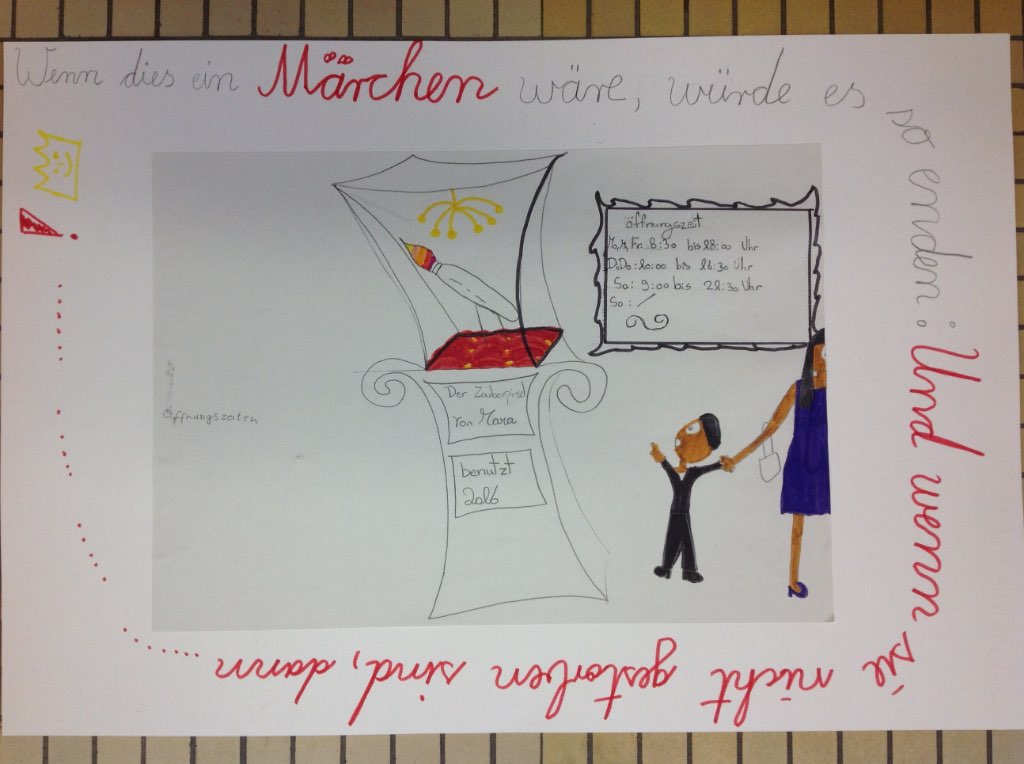 Wenn dies ein Märchen wäre, würde es
so enden: Und wenn
sie nicht gestorben sind, dann
..............!
öffnungszeit
Mo, Mi, Fr: 8:30 bis 18:00 Uhr
Di, Do: 10:00 bis 16:30 Uhr
Sa: 9:00 bis 21:30 Uhr
So: /
Öffnungszeiten
Der Zauberpinsel
von Mara
benutzt
2016